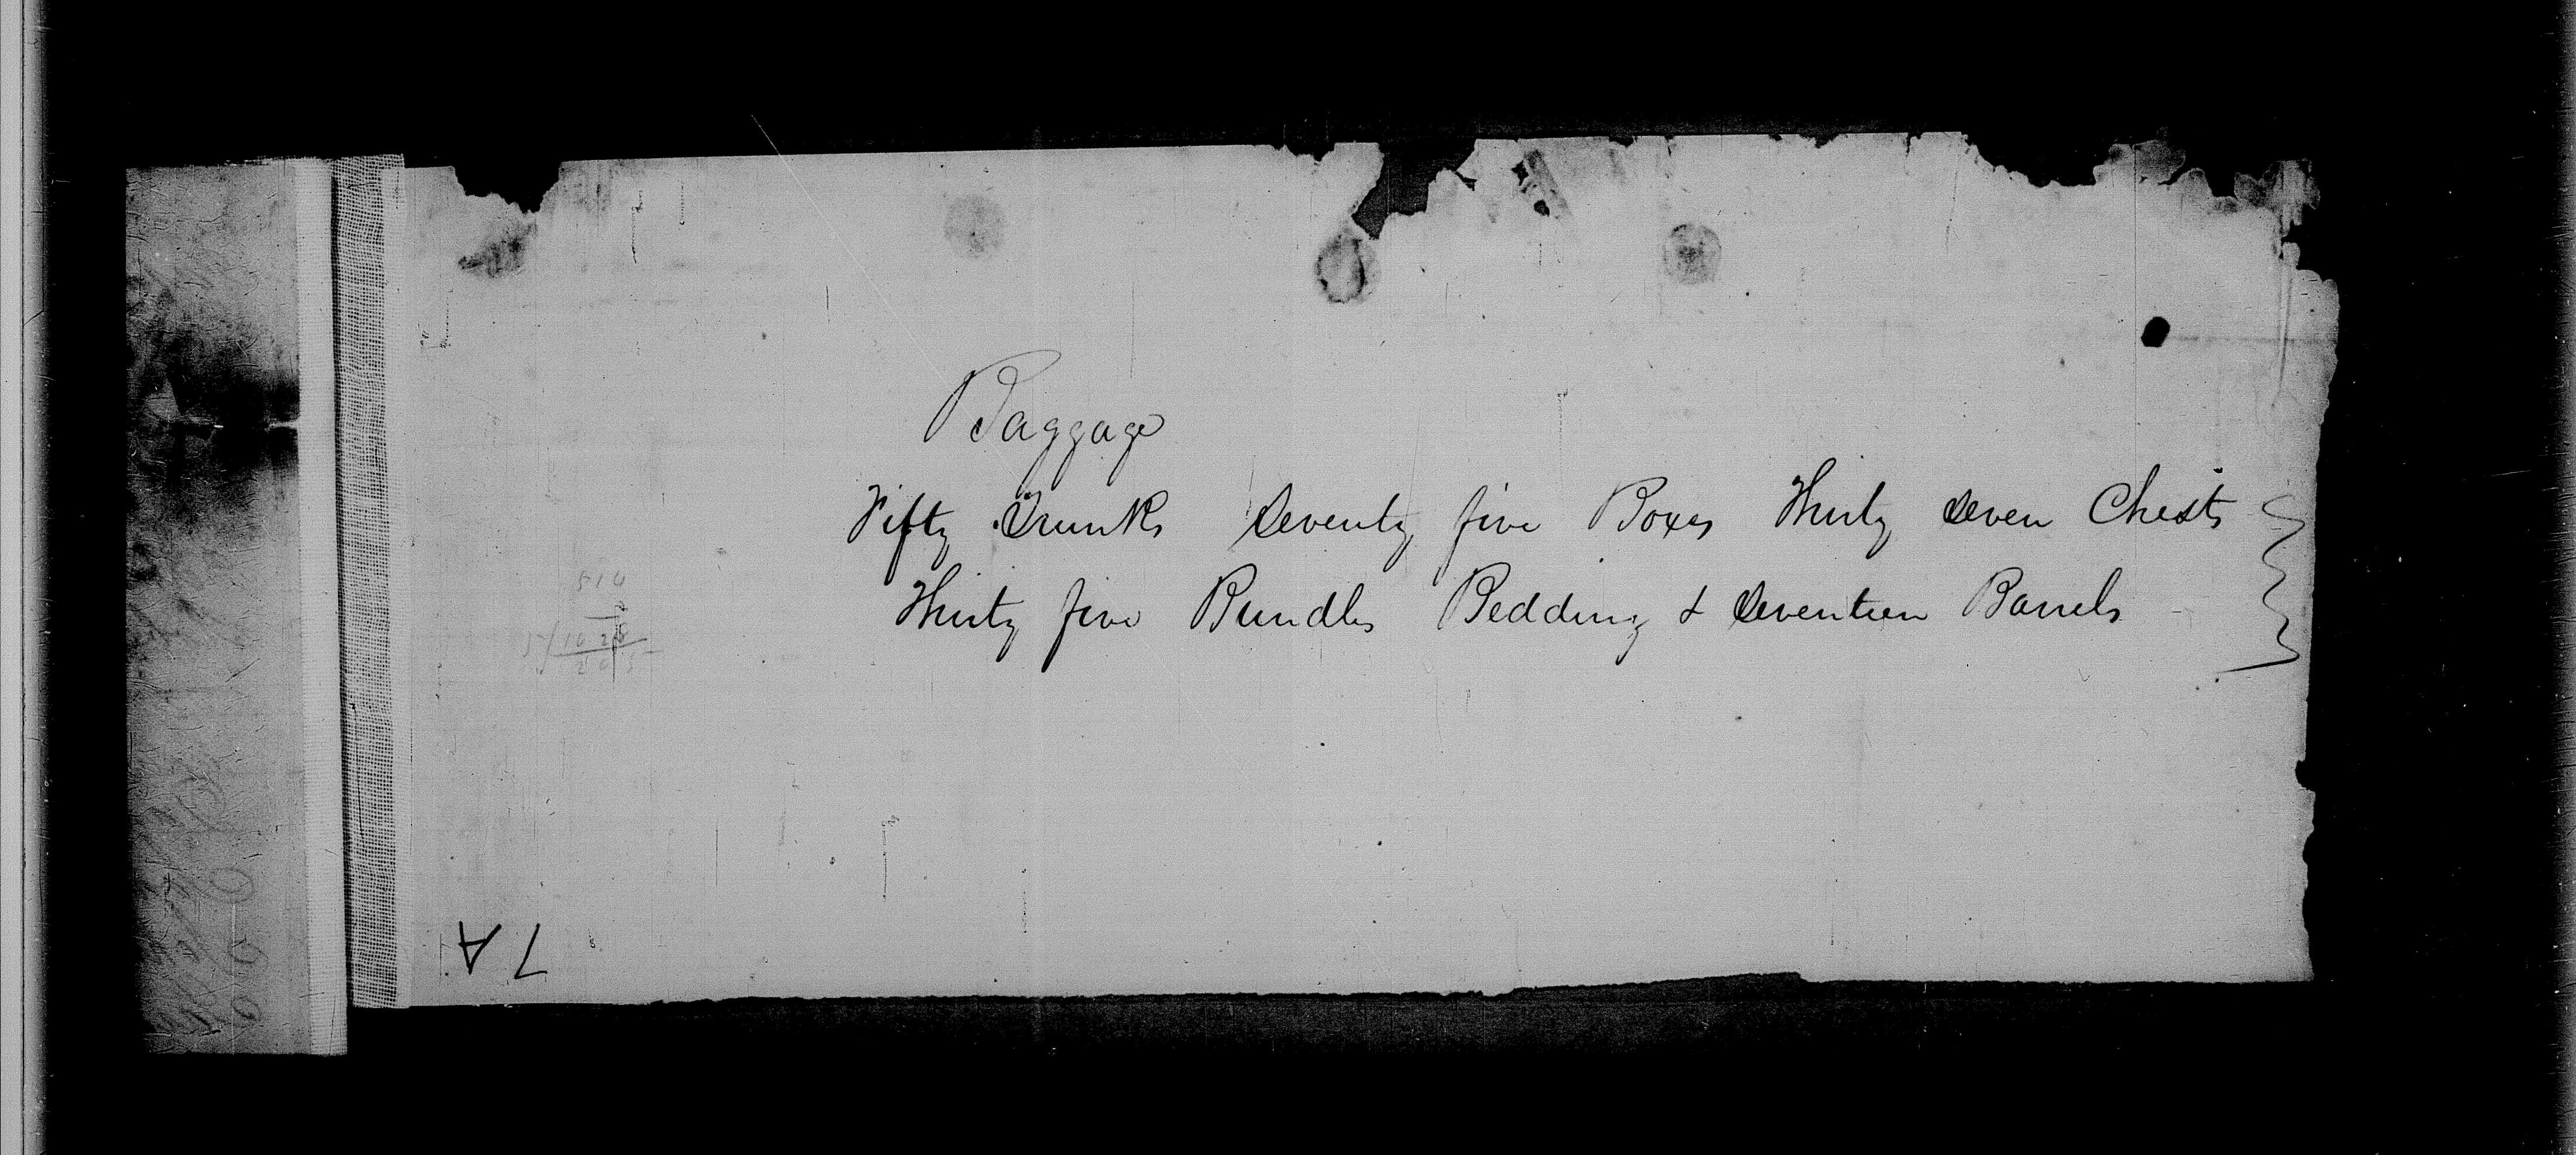 Baggage
Fifty Trunks Seventy five Boxes Thirty seven Chests
Thirty five Bundles Bedding & Seventeen Barrels
7A